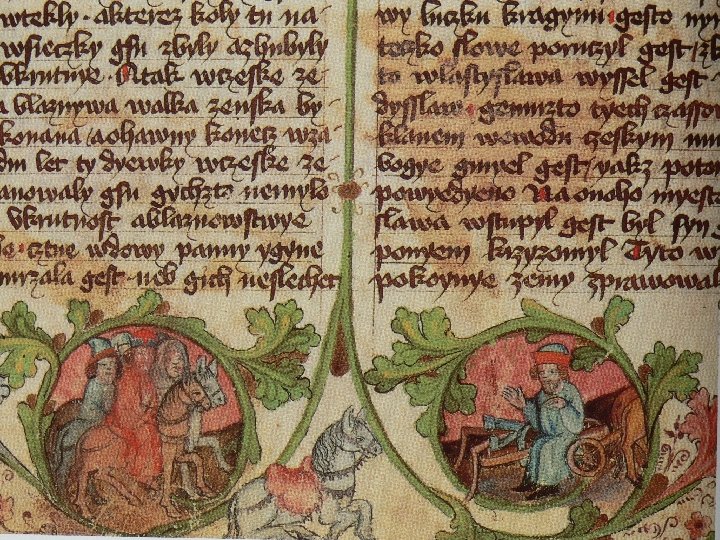 wtekly · akterez koly tu na
wsieczky gsu zbyly azhubyly
vkrutnye · Atak wczeske ze
a blaznywa walka zenska by
konana / aohawny konecz wza
du let ty dyewky wczeske ze
anowaly gsu gychzto nemylo
vkrutnost ablaznowstwye
ztne wdowy panny ygyne
mrzala gest · neb gich neslechet
wy luczku kragymi · gesto
tezko slowe porucyl gest /
to wlastyslawa wyssel gest ·
dysslaw · gemuzto tyech czassow
klanem wewodu czeskym
bogye gmyel gest / yakz potom
powyedyeno Na onoho myesto
slawa wstupyl gest byl syn
ponyem krzyzomyl Tyto w
pokoynye zemy zprawowal